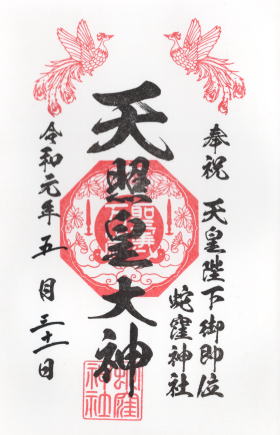 奉祝 天皇陛下御即位
蛇窪神社
天照皇大神
令和元年五月三十一日
蛇窪
神社